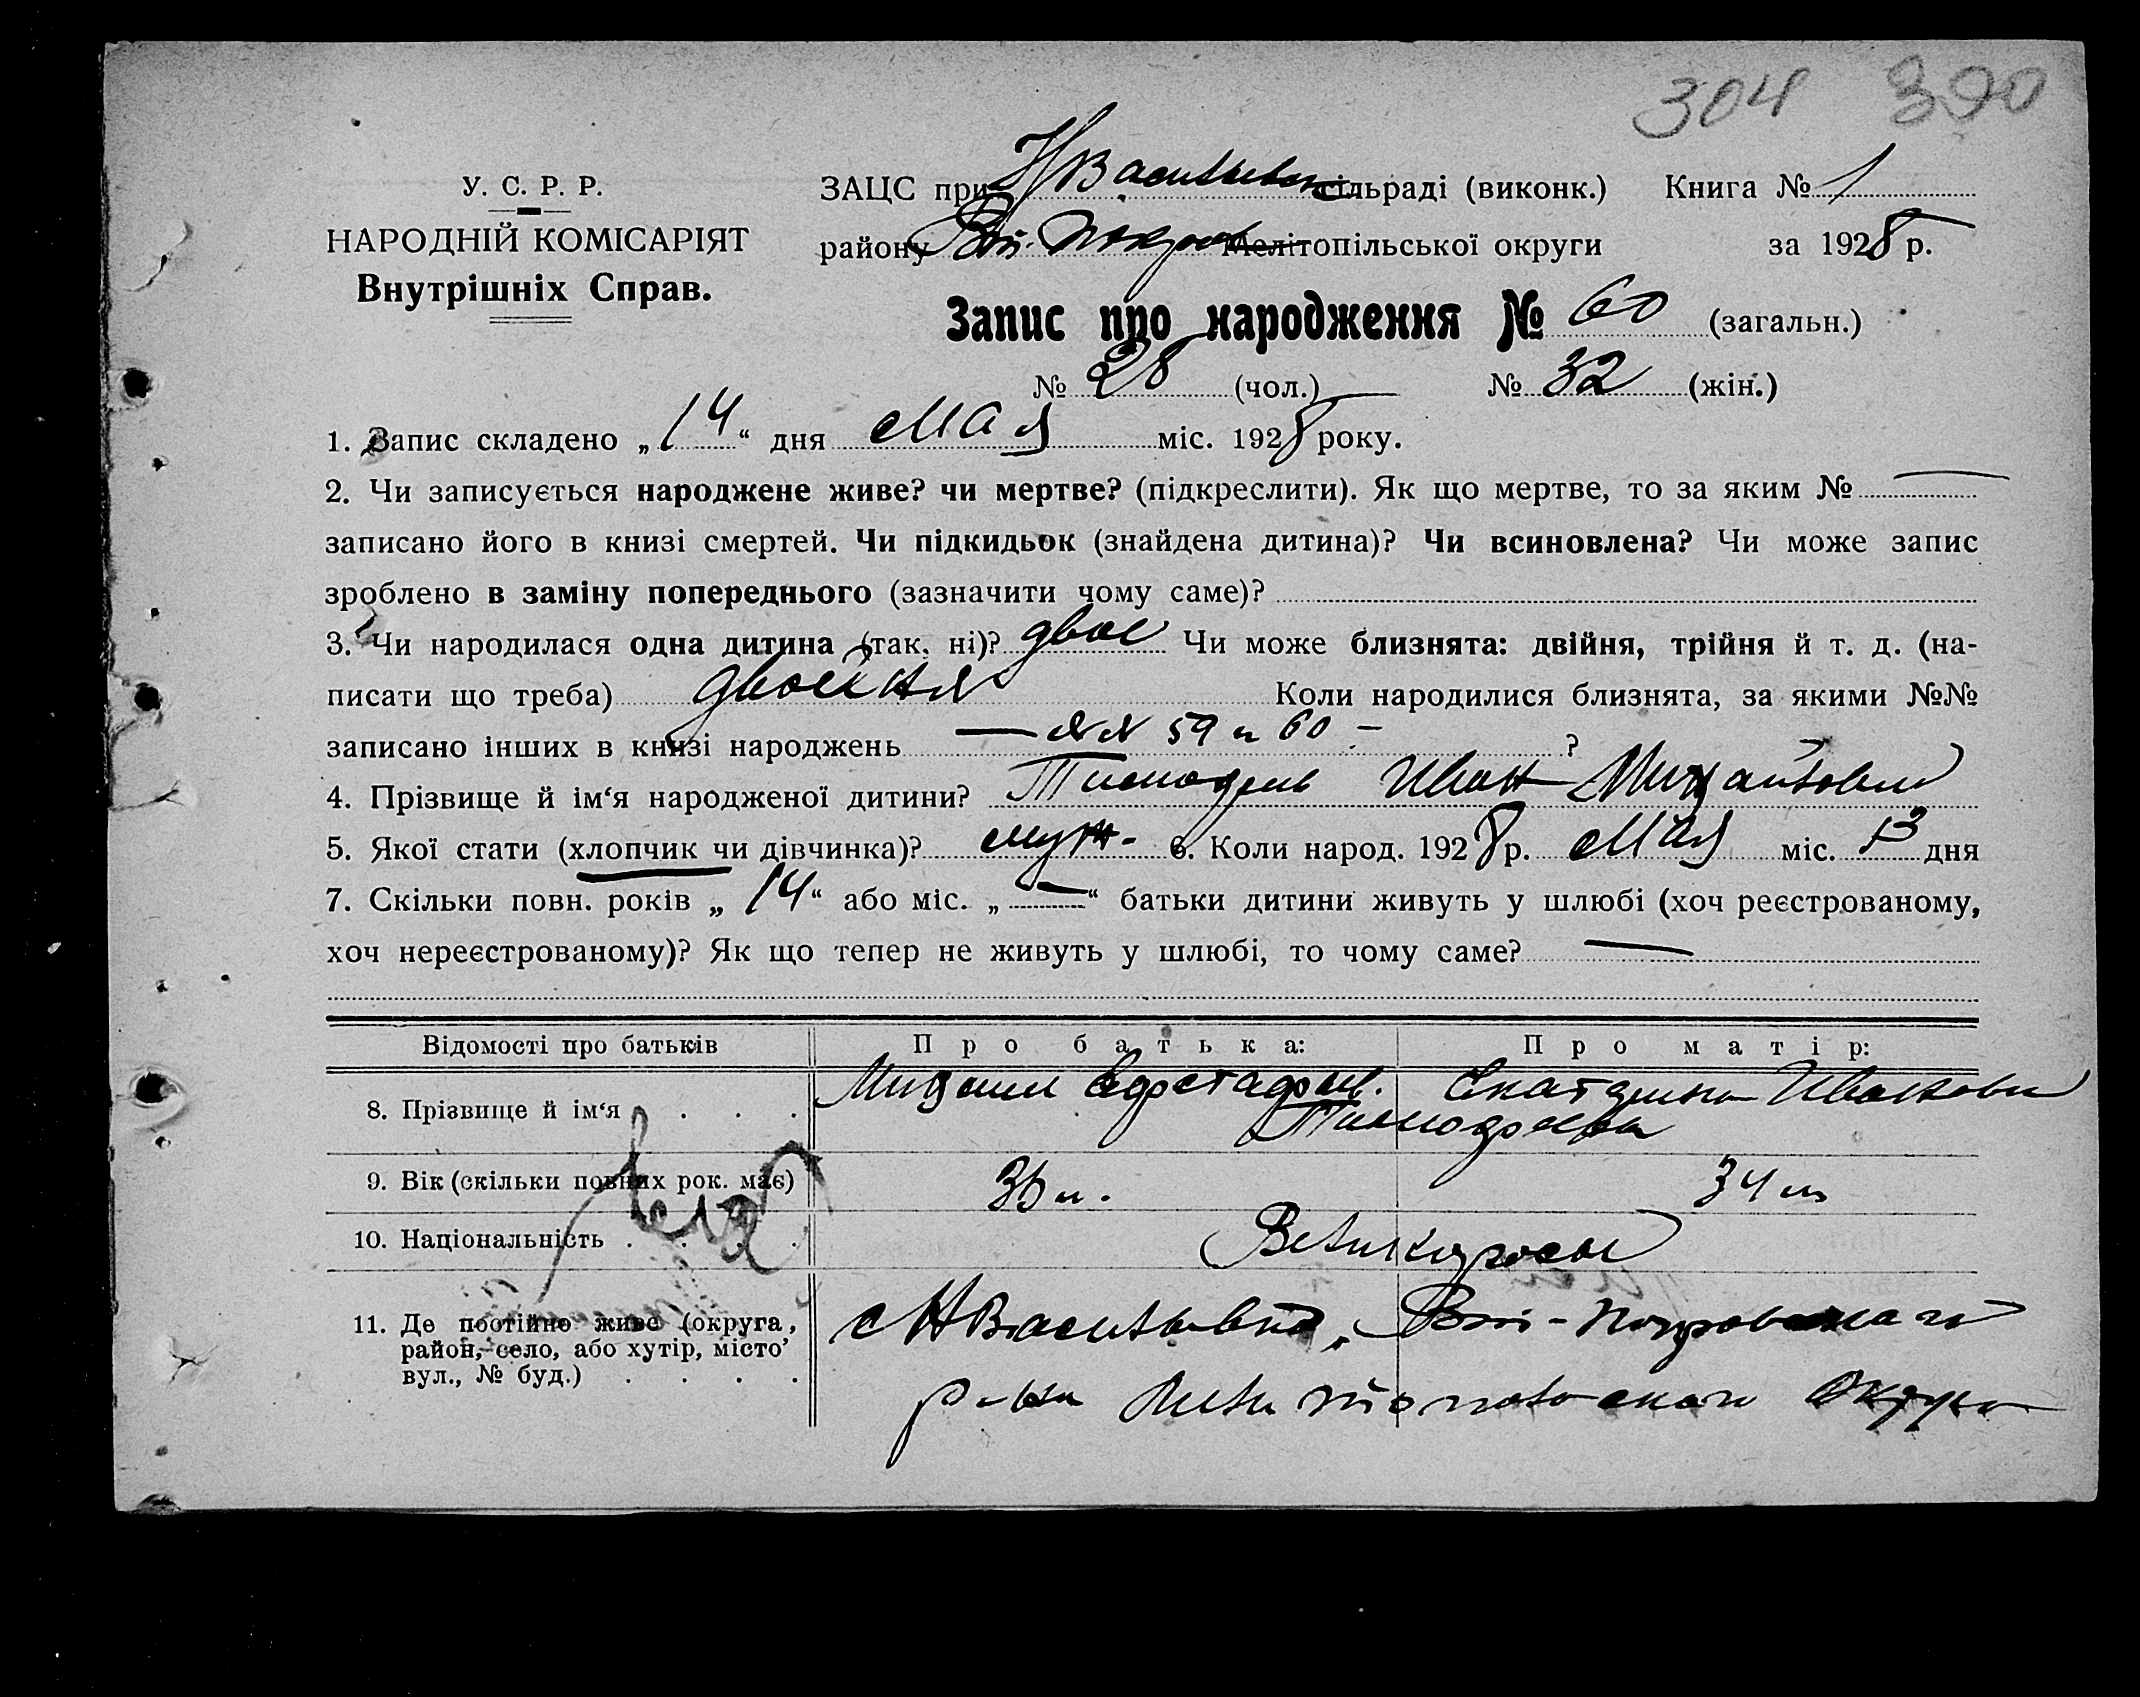 304 390
У. С. Р. Р.
НАРОДНІЙ КОМІСАРІЯТ
Внутрішніх Справ.
ЗАЦС при НВасильевск сільраді (виконк.) Книга № 1
району Вл. Покров Мелітопільської округи за 1928 р.
Запис про народження № 60 (загальн.)
№ 28 (чол.) № 32 (жін.)
1. Запис складено „ 14 “ дня мая міс. 1928 року.
2. Чи записується народжене живе? чи мертве? (підкреслити). Як що мертве, то за яким № —
записано його в книзі смертей. Чи підкидьок (знайдена дитина)? Чи всиновлена? Чи може запис
зроблено в заміну попереднього (зазначити чому саме)?
3. Чи народилася одна дитина (так, ні)? двое Чи може близнята: двійня, трійня й т. д. (на-
писати що треба) двойня Коли народилися близнята, за якими №№
записано інших в книзі народжень — №№ 59 и 60 — ?
4. Прізвище й ім‘я народженої дитини? Иван Михайлович
5. Якої стати (хлопчик чи дівчинка)? муж- 6. Коли народ. 1928 р. мая міс. 13 дня
7. Скільки повн. років „ 14 “ або міс. „ — “ батьки дитини живуть у шлюбі (хоч реєстрованому,
хоч нереєстрованому)? Як що тепер не живуть у шлюбі, то чому саме? —
Відомості про батьків Про батька: Про матір:
8. Прізвище й ім‘я . . . Михаил Екатерина Ивановна
9. Вік (скільки повних рок. має) 34
10. Національність . . . Великоросы
11. Де постійно живе (округа,
район, село, або хутір, місто
вул., № буд.) . . . .
с НВасильевка, Покровского
р-на Мелитопольского Округа